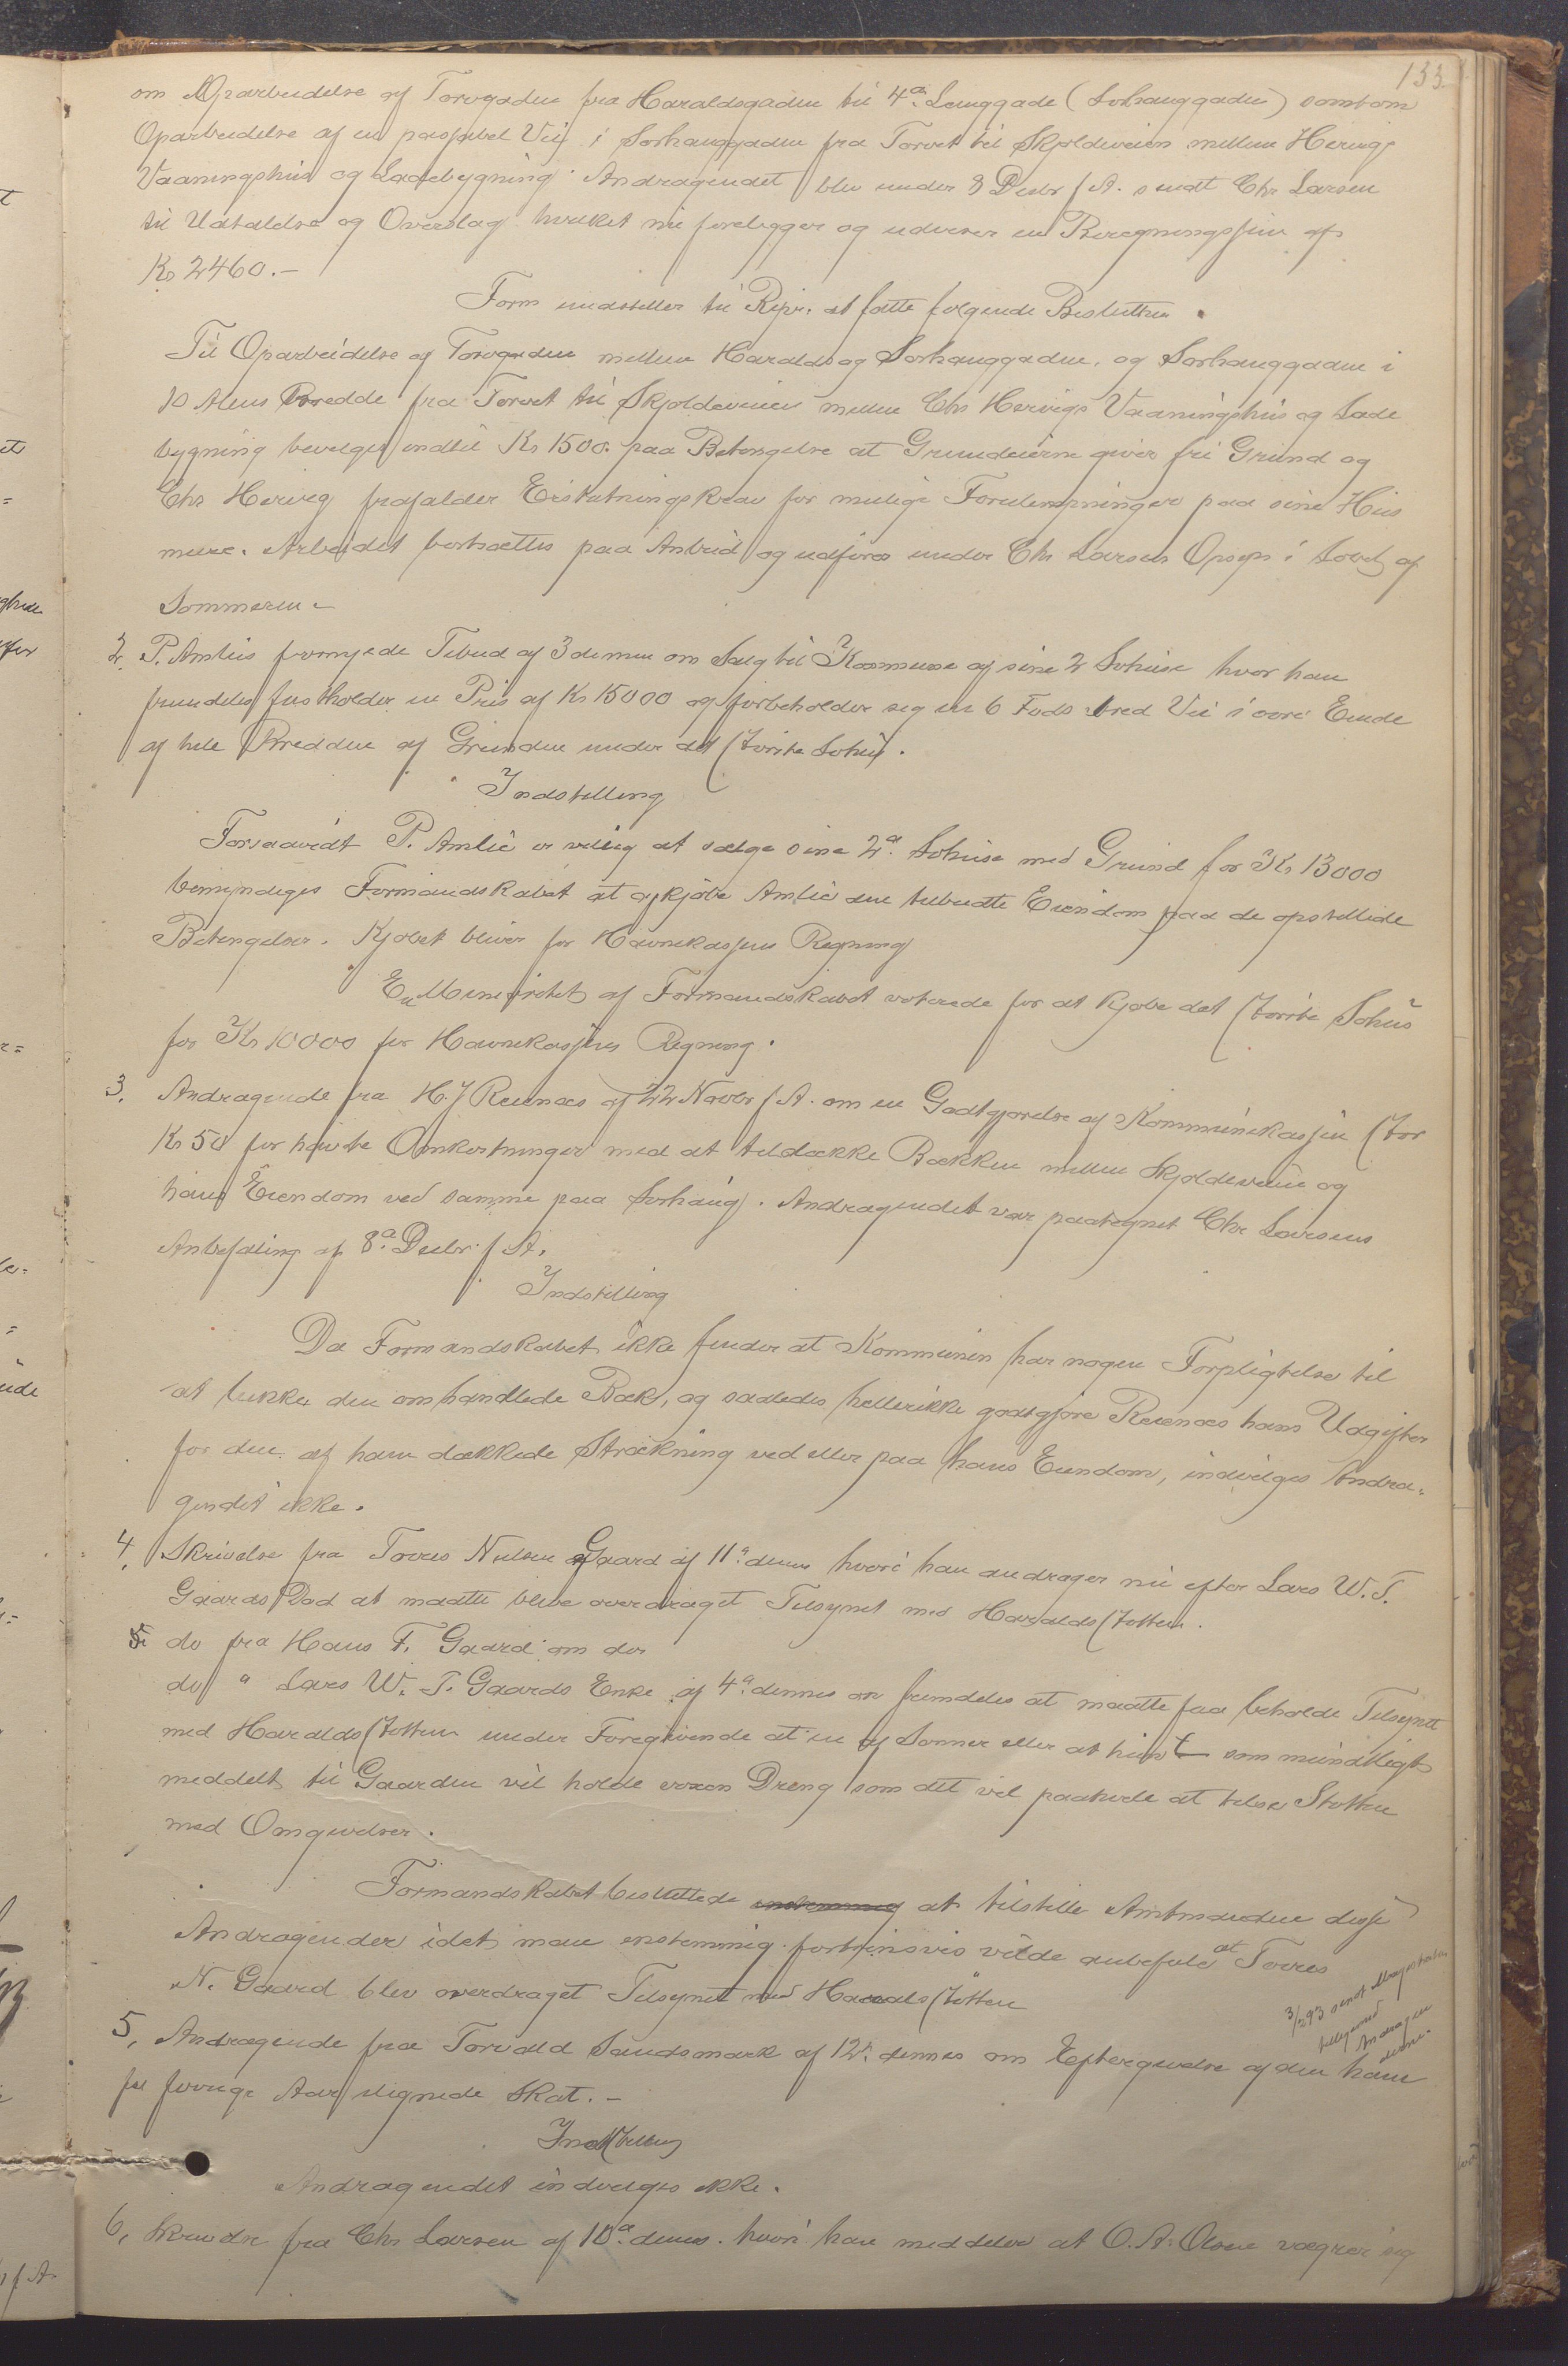 133.
om Oparbeidelse af Torvgaden fra Haraldsgaden til 4de Længgade (Sørhauggaden) samt om
Oparbeidelse af en passabel Vei i Sørhauggaden fra Torvet til Skjoldeveien mellem Hervigs
Vaaningshus og Ladebygning. Andragendet blev under 8 Desbr f. A. sendt Chr Larsen
til Udtalelse og Overslag hvilket nu foreligger og udviser en Beregningssum af
Kr 2460.-
Form indstiller til Repr. at fatte følgende Beslutten.
Til Oparbeidelse af Torvgaden mellem Haralds og Sørhauggaden, og Sørhauggaden i
10 Alens Bredde fra Torvet til Skjoldeveien mellem Chr Hervigs Vaaningshus og Lade
bygning bevilges indtil Kr 1500. paa Betingelse at Grundeierne giver fri Grund og
Chr Hervig frafalder Erstatningskrav for mulige Forulempninger paa sine Hus
mure. Arbeidet bortsættes paa Anbud og udføres under Chr Larsens Opsyn i Løbet af
Sommeren.-
2. P. Amlies fornyede Tilbud af 3 dennes om Salg til Kommune af sine 2 Søhuse hvor han
fremdeles fastholder en Pris af Kr 15000 og forbeholder sig en 6 Fods bred Vei i øvre Ende
af hele Bredden af Grunden under det største Søhus.
Indstilling
Forsaavidt P. Amlie er villig at sælge sine 2de Søhuse med Grund for Kr 13000
bemyndiges Formandskabet at opkjøbe Amlie den tilbudte Eiendom paa de opstillede
Betingelser. Kjøbet bliver for Havnekassens Regning
En Minoritet af Formandskabet voterede for at kjøbe det største Søhus
for Kr 10000 for Havnekassens Regning.
3. Andragende fra H. J Reienæs af 22 Novbr f. A. om en Godtgjørelse af Kommunekassen stor
Kr 50 for havte Omkostninger med at tildække Bækken mellem Skjoldeveien og
hans Eiendom ved samme paa Sørhaug. Andragendet var paategnet Chr Larsens
Anbefaling af 8de Desbr f. A.
Indstilling
Da Formandskabet ikke finder at Kommunen har nogen Forpligtelse til
at lukke den omhandlede Bæk, og saaledes hellerikke godtgjøre Reienæs hans Udgifter
for den af ham dækkede Strækning ved eller paa hans Eiendom, indvilges Andra-
gendet ikke.
4. Skrivelse fra Torres Nilsen Gaard af 11te dennes hvori han andrager nu efter Lars W. T.
Gaards Død at maatte blive overdraget Tilsynet med Haraldsstøtten.
do fra Hans F. Gaard om do
do " Lars W. T. Gaards Enke af 4de dennes om fremdeles at maatte faa beholde Tilsynet
med Haraldsstøtten under Foregivende at en af Sønner eller at hun som mundtligt
meddelt til Gaarden vil holde voxen Dreng som det vil paahvile at tilse Støtten
med Omgivelser.
Formandskabet besluttede enstemmig at tilstille Amtmanden disse
Andragender idet man enstemmig fortrinsvis vilde anbefale at Torres
N. Gaard blev overdraget Tilsynet med Haraldsstøtten
3/2 93 sendt
Andragen
derne.
5, Andragende fra Torvald Sandsmark af 12te dennes om Eftergivelse af den ham
for forrige Aar lignede Skat.-
Indstilling
Andragendet indvilges ikke.
6, Skrivelse fra Chr Larsen af 10de dennes. hvori han meddeler at O. A. Olsen vægrer sig